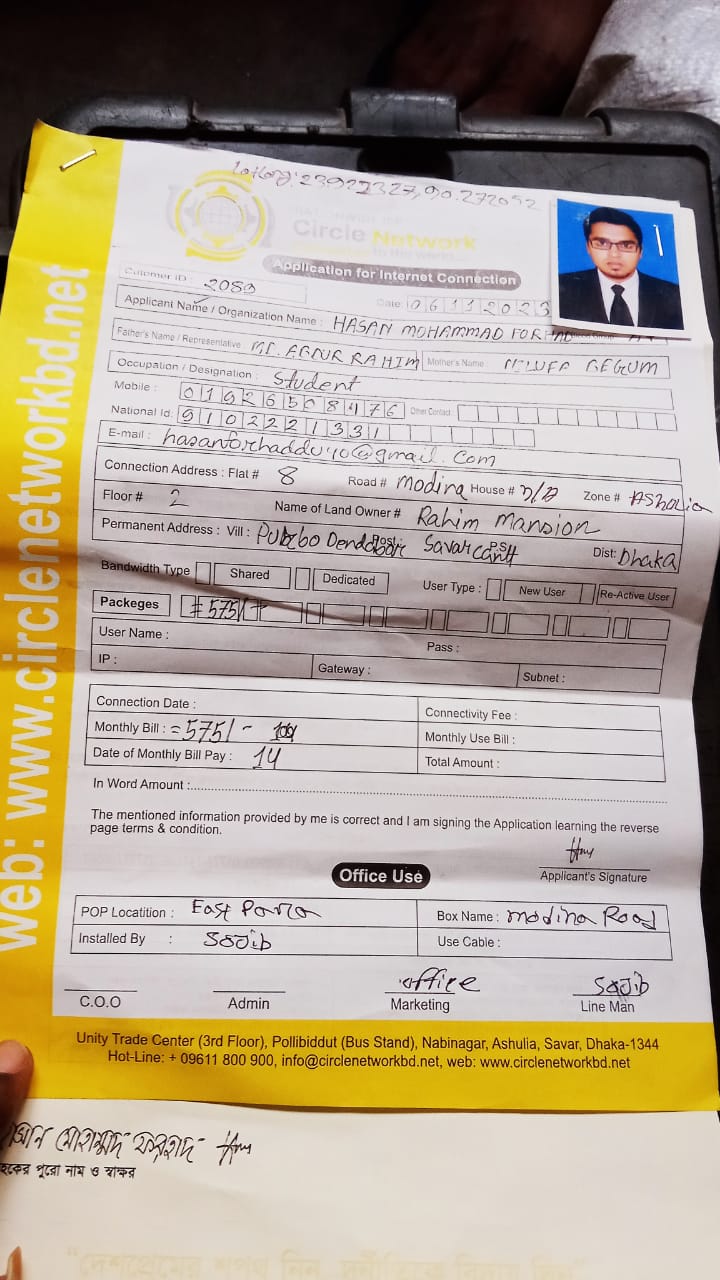 23922327, 90.272052
Circle Network
Application for Internet Connection
Cutomer ID : 2089
Date: 06112023
Applicant Name / Organization Name : HASAN MOHAMMAD FORHAD
Father's Name / Representative MD. ABDUR RAHIM Mother's Name : BEGUM
Occupation / Designation : Student
Mobile : 01926508476 Other Contact:
National Id: 9102221331
E-mail : @gmail.com
Connection Address : Flat # 8 Road # Modina House # N/A Zone # Ashulia
Floor # 2 Name of Land Owner # Rahim Mansion
Permanent Address : Vill : Purbo Dendabor Post: Savar Cantt P.S Dist: Dhaka
Bandwidth Type Shared Dedicated User Type : New User Re-Active User
Packeges # 575/ #
User Name : Pass :
IP : Gateway : Subnet :
Connection Date : Connectivity Fee :
Monthly Bill : = 575/- Monthly Use Bill :
Date of Monthly Bill Pay : 14 Total Amount :
In Word Amount :
The mentioned information provided by me is correct and I am signing the Application learning the reverse
page terms & condition.
Applicant's Signature
Office Use
POP Locatition : East Para Box Name : Modina Road
Installed By : Sojib Use Cable :
office Sojib
C.O.O Admin Marketing Line Man
Unity Trade Center (3rd Floor), Pollibiddut (Bus Stand), Nabinagar, Ashulia, Savar, Dhaka-1344
Hot-Line: + 09611 800 900, info@circlenetworkbd.net, web: www.circlenetworkbd.net
web: www.circlenetworkbd.net
মোহাম্মদ ফরহাদ
হকের পুরো নাম ও স্বাক্ষর